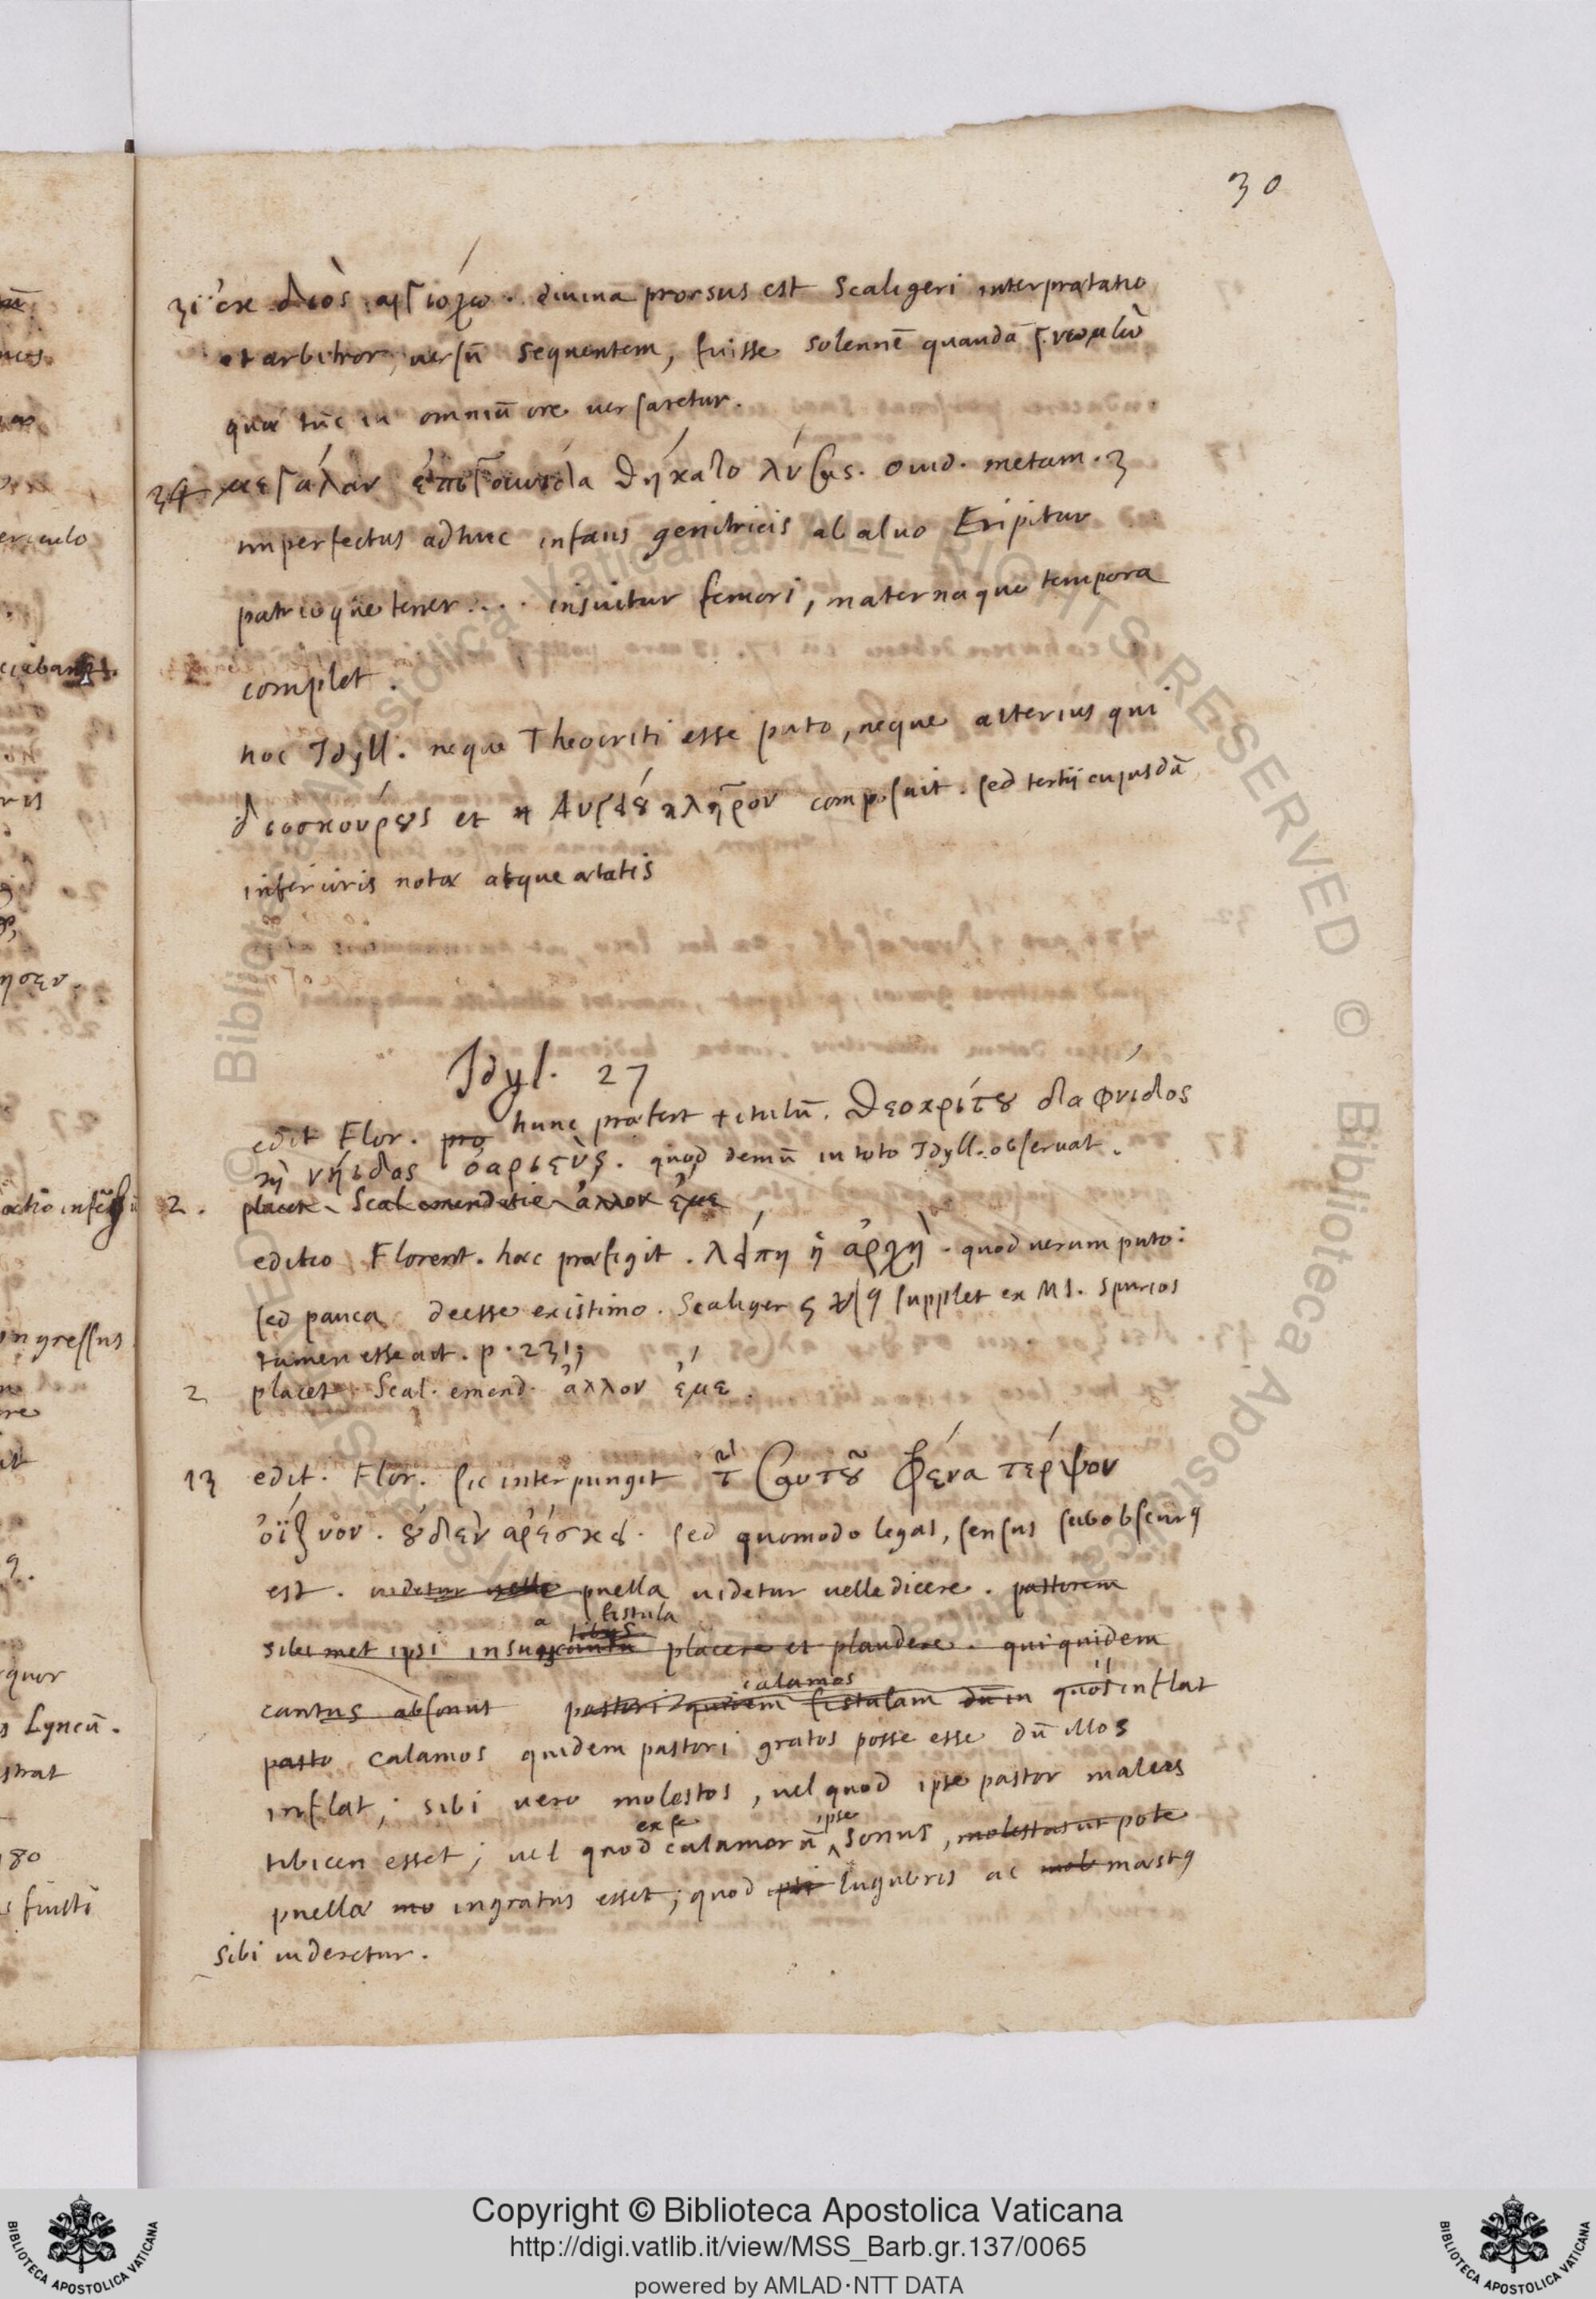 30
31 ἐκ Διὸς αἰγιόχω. diuina prorsus est Scaligeri interpretatio
et arbitror uersū sequentem, fuisse solennē quandā γνωμὼ
quæ tūc in omniū ore uersaretur.
34 μεγάλαν ἐπιγουνίδα θήκατο λύσας. ouid. metam. 3
imperfectus adhuc infans genitricis ab aluo Eripitur
patrioque tener .... insuitur femori, maternaque tempora
complet.
hoc Idyll. neque Theocriti esse puto, neque alterius qui
διοσκούρους et κληρον composuit. sed tertij cujusdā
inferioris notæ atque ætatis
Idyl. 27
edit Flor. pro hunc præfert titulū. Θεοκρίτου δαφνίδος
νηίδος ὀαριστὺς. quod demū in toto Idyll. obseruat.
2. placet Scal emendatie ἄλλον ἐμε
editio Florent. hæc præfigit. λείπη ἡ ἀρχὴ. quod uerum puto:
sed pauca deesse existimo. Scaliger 5 supplet ex MS. spurios
tamen esse ait. p. 231;
2 placet Scal. emend. ἄλλον ἐμε.
13 edit. Flor. sic interpungit τ̃ σαυτοῦ φρένα τέρψον
ὀϊζυον. οὐδεν ἀρέσκει. sed quomodo legas, sensus subobscurus
est. uidetur uelle puella uidetur uelle dicere. pastorem
a fistula
tibus
sibimet ipsi insua cantu placere et plaudere. qui quidem
calamos
cantus absonus pastori quidem fistulam dū in quos inflat
pasto calamos quidem pastori gratos posse esse dū illos
inflat, sibi uero molestos, uel quod ipse pastor malus
ex se ipse
tibicen esset; uel quod calamorū sonus, molestus ut pote
puellæ mo ingratus esset; quod ipsi lugubris ac mol mæstus
sibi uideretur.
Copyright © Biblioteca Apostolica Vaticana
http://digi.vatlib.it/view/MSS_Barb.gr.137/0065
powered by AMLAD·NTT DATA